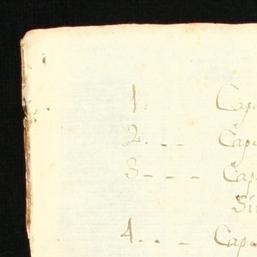 1. Cap
2. - - Cap
3 - - - - Cap
Si
4. - - Cap